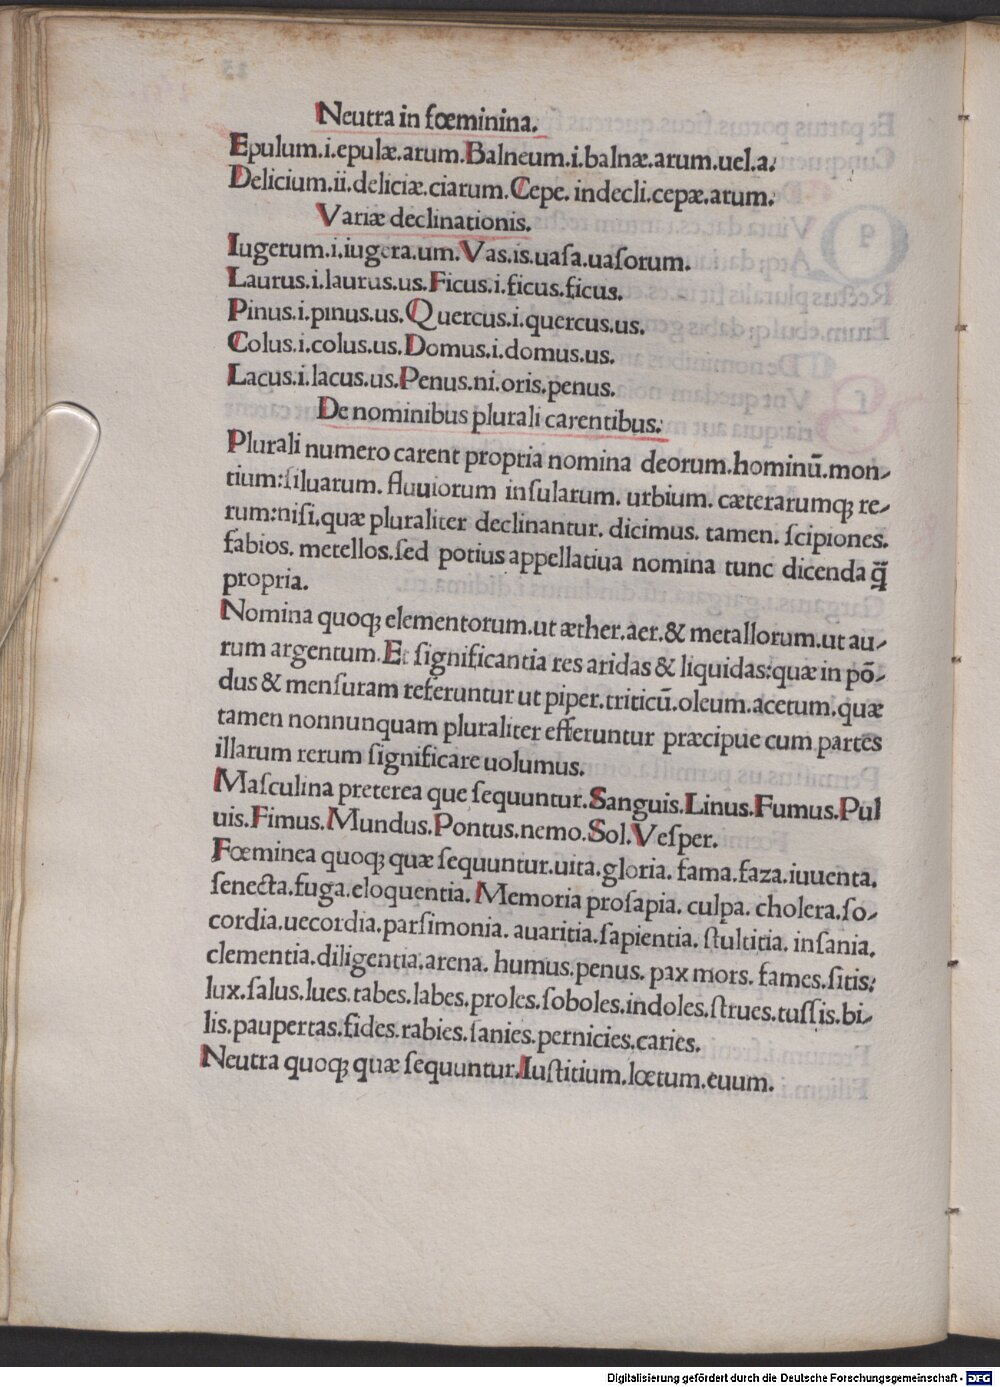 Neutra in fœminina.
Epulum.i.epulæ.arum.Balneum.i.balnæ.arum.uel.a.
Delicium.ii.deliciæ.ciarum.Cepe. indecli.cepæ.arum.
Variæ declinationis.
Iugerum.i.iugera.um.Vas.is.uaſa.uaſorum.
Laurus.i.laurus.us.Ficus.i.ficus.ficus.
Pinus.i.pinus.us.Quercus.i.quercus.us.
Colus.i.colus.us.Domus.i.domus.us.
Lacus.i.lacus.us.Penus.ni.oris.penus.
De nominibus plurali carentibus.
Plurali numero carent propria nomina deorum.hominū.mon-
tium:ſiluarum. fluuiorum inſularum. urbium. cæterarumqꝫ re-
rum:niſi.quæ pluraliter declinantur. dicimus. tamen. ſcipiones.
fabios. metellos.ſed potius appellatiua nomina tunc dicenda q̄̈
propria.
Nomina quoqꝫ elementorum.ut æther.aer.& metallorum.ut au-
rum argentum.Et ſignificantia res aridas & liquidas:quæ in pō-
dus & menſuram referuntur ut piper.triticū.oleum.acetum.quæ
tamen nonnunquam pluraliter efferuntur præcipue cum partes
illarum rerum ſignificare uolumus.
Maſculina preterea que ſequuntur.Sanguis.Linus.Fumus.Pul
uis.Fimus.Mundus.Pontus.nemo.Sol.Veſper.
Fœminea quoqꝫ quæ ſequuntur.uita.gloria. fama.faza.iuuenta.
ſenecta.fuga.eloquentia. Memoria proſapia. culpa. cholera.ſo-
cordia.uecordia.parſimonia. auaritia.ſapientia. ſtultitia. inſania.
clementia.diligentia.arena. humus.penus. pax mors. fames.ſitis.
lux.ſalus.lues.tabes.labes.proles.ſoboles.indoles.ſtrues.tuſſis.bi-
lis.paupertas.fides.rabies.ſanies.pernicies.caries.
Neutra quoqꝫ quæ ſequuntur.Iuſtitium.lœtum.euum.
Digitalisierung gefördert durch die Deutsche Forschungsgemeinschaft - DFG